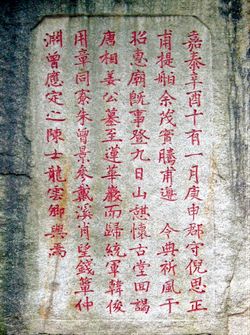 嘉泰辛酉十有一月庚申郡守倪思正
甫提舶余茂實騰甫遵 令典祈風于
昭惠廟既事登九日山憩懷古堂回謁
唐相姜公墓至蓮華巖而歸統軍韓俊
用章同寮朱曾景參戴溪肖望錢仲
淵曾應定之陳士龍雲卿與焉